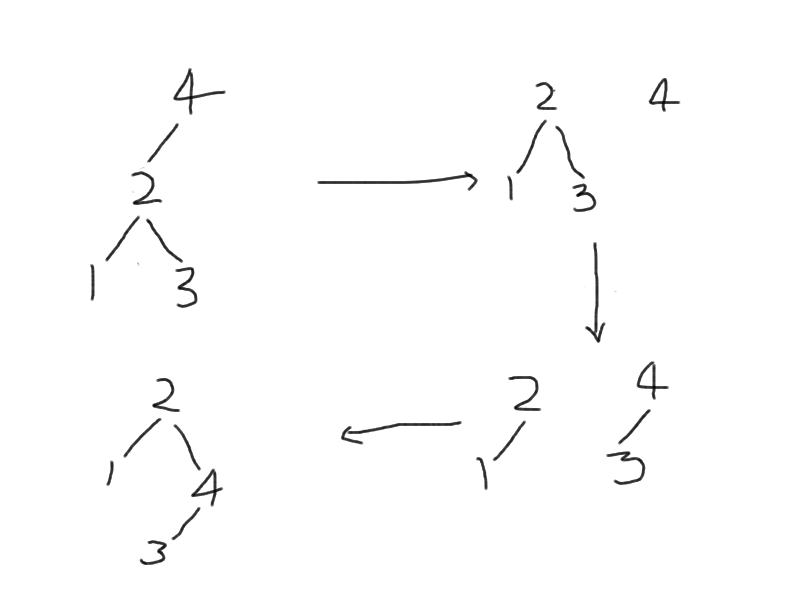 4
2
1 3
2 4
1 3
2 4
1 3
2
1 4
3